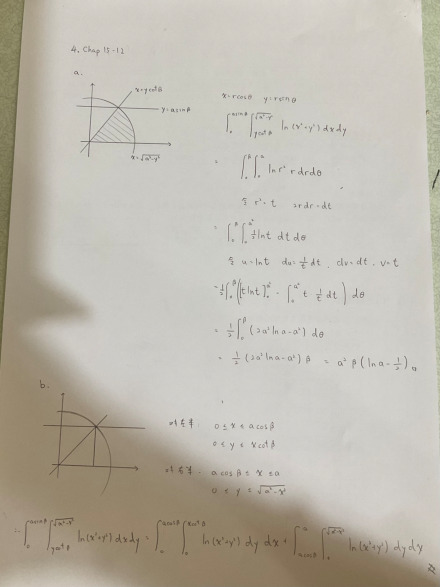 4. Chap 15-12
a.
x=ycotβ
y=asinβ
x=√(a²-y²)
x=rcosθ y=rsinθ
∫₀^{asinβ} ∫_{ycotβ}^{√(a²-y²)} ln(x²+y²) dxdy
= ∫₀^β ∫₀^a ln r² r dr dθ
r²=t 2rdr=dt
= ∫₀^β ∫₀^{a²} ½ ln t dt dθ
u=lnt du=1/t dt, dv=dt, v=t
= ½∫₀^β ([t ln t]₀^{a²} - ∫₀^{a²} t 1/t dt) dθ
= ½∫₀^β (2a² ln a - a²) dθ
= ½ (2a² ln a - a²) β = a² β (ln a - ½)
b.
0 ≤ x ≤ a cosβ
0 ≤ y ≤ x cotβ
a cosβ ≤ x ≤ a
0 ≤ y ≤ √(a²-x²)
∴ ∫₀^{asinβ} ∫_{ycotβ}^{√(a²-y²)} ln(x²+y²) dxdy = ∫₀^{acosβ} ∫₀^{xcotβ} ln(x²+y²) dy dx + ∫_{acosβ}^{a} ∫₀^{√(a²-x²)} ln(x²+y²) dy dx